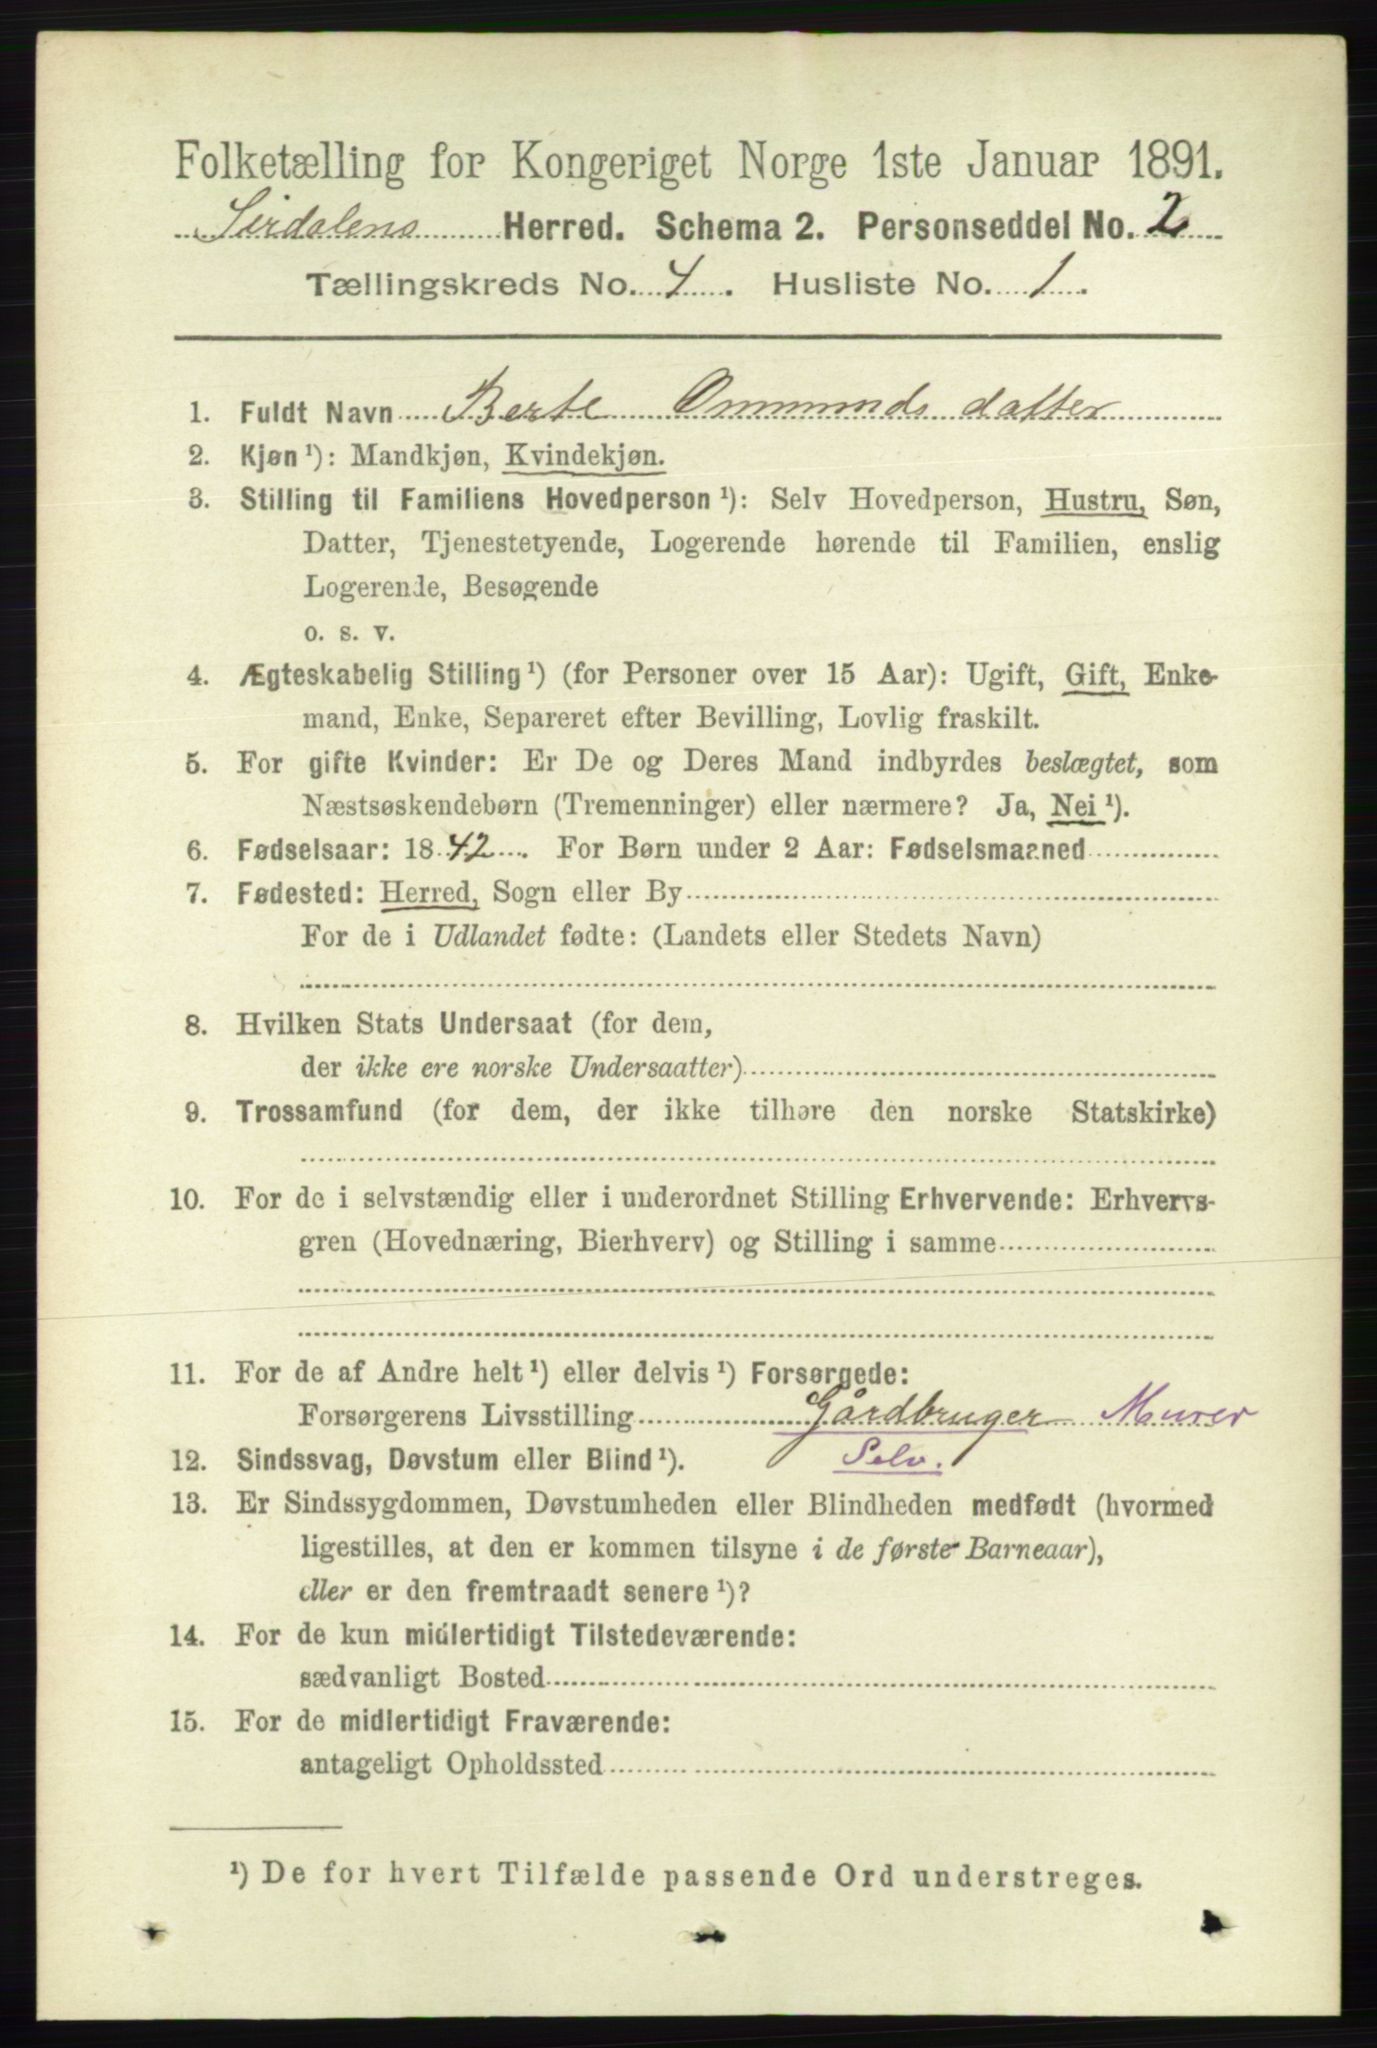 Folketælling for Kongeriget Norge 1ste Januar 1891.
Sirdalens Herred. Schema 2. Personseddel No. 2
Tællingskreds No. 4. Husliste No. 1.
1. Fuldt Navn Berte Ommunds datter
2. Kjøn ¹): Mandkjøn, Kvindekjøn.
3. Stilling til Familiens Hovedperson ¹): Selv Hovedperson, Hustru, Søn,
Datter, Tjenestetyende, Logerende hørende til Familien, enslig
Logerende, Besøgende
o. s. v.
4. Ægteskabelig Stilling ¹) (for Personer over 15 Aar): Ugift, Gift, Enke-
mand, Enke, Separeret efter Bevilling, Lovlig fraskilt.
5. For gifte Kvinder: Er De og Deres Mand indbyrdes beslægtet, som
Næstsøskendebørn (Tremenninger) eller nærmere? Ja, Nei ¹).
6. Fødselsaar: 1842. For Børn under 2 Aar: Fødselsmaaned
7. Fødested: Herred, Sogn eller By
For de i Udlandet fødte: (Landets eller Stedets Navn)
8. Hvilken Stats Undersaat (for dem,
der ikke ere norske Undersaatter)
9. Trossamfund (for dem, der ikke tilhøre den norske Statskirke)
10. For de i selvstændig eller i underordnet Stilling Erhvervende: Erhvervs-
gren (Hovednæring, Bierhverv) og Stilling i samme
11. For de af Andre helt ¹) eller delvis ¹) Forsørgede:
Forsørgerens Livsstilling Gårdbruger Murer
12. Sindssvag, Døvstum eller Blind ¹). Selv.
13. Er Sindssygdommen, Døvstumheden eller Blindheden medfødt (hvormed
ligestilles, at den er kommen tilsyne i de første Barneaar),
eller er den fremtraadt senere ¹)?
14. For de kun midlertidigt Tilstedeværende:
sædvanligt Bosted
15. For de midlertidigt Fraværende:
antageligt Opholdssted
¹) De for hvert Tilfælde passende Ord understreges.